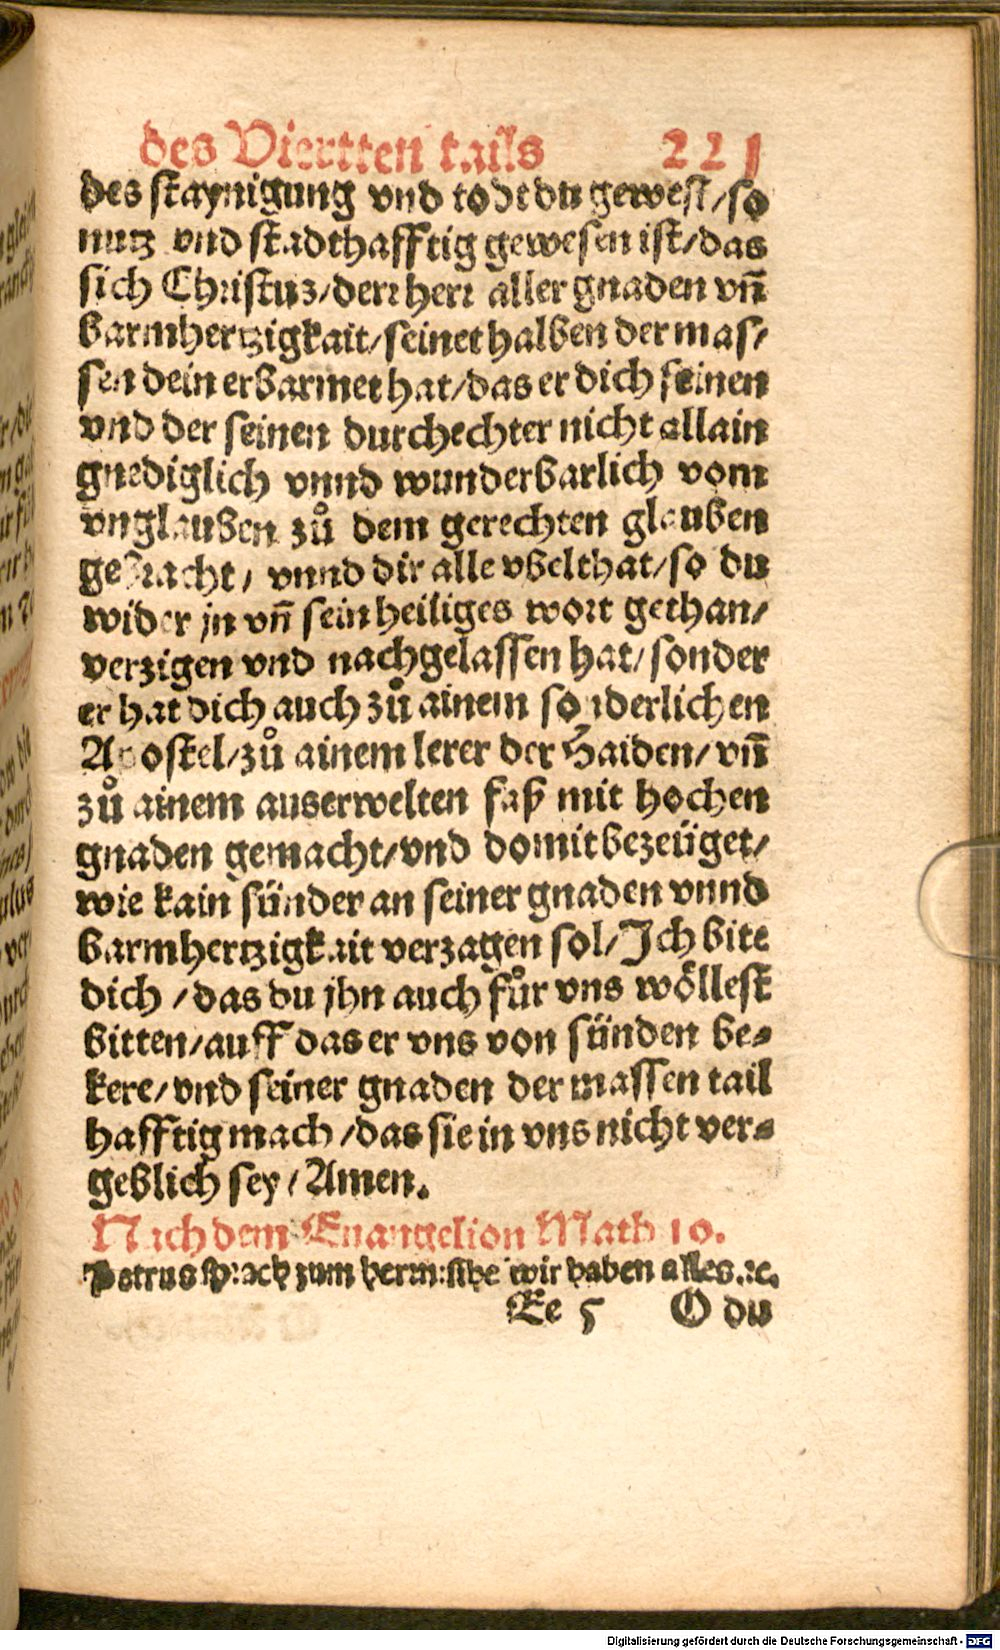 des Viertten tails 221
des staynigung vnd todt du gewest/so
nutz vnd stadthafftig gewesen ist/das
sich Christus/derr herr aller gnaden vñ
barmhertzigkait/seinethalben der mas/
sen dein erbarmet hat/das er dich seinen
vnd der seinen durchechter nicht allain
gnediglich vnnd wunderbarlich vom
vnglauben zů dem gerechten glauben
gebracht/ vnnd dir alle vbelthat/so du
wider jn vñ sein heiliges wort gethan/
verzigen vnd nachgelassen hat/sonder
er hat dich auch zů ainem sonderlichen
Apostel/zů ainem lerer der Haiden/vñ
zů ainem auserwelten faß mit hochen
gnaden gemacht/vnd domit bezeüget/
wie kain sünder an seiner gnaden vnnd
barmhertzigkait verzagen sol/Ich bitt
dich /das du jhn auch fůr vns wöllest
bitten/auff das er vns von sünden be-
kere/vnd seiner gnaden der massen tail
hafftig mach /das sie in vns nicht ver-
geblich sey/Amen.
Nach dem Euangelion Math 10.
Petrus sprach zum herrn:sihe wir haben alles.ꝛc.
Ee 5 O du
Digitalisierung gefördert durch die Deutsche Forschungsgemeinschaft - DFG